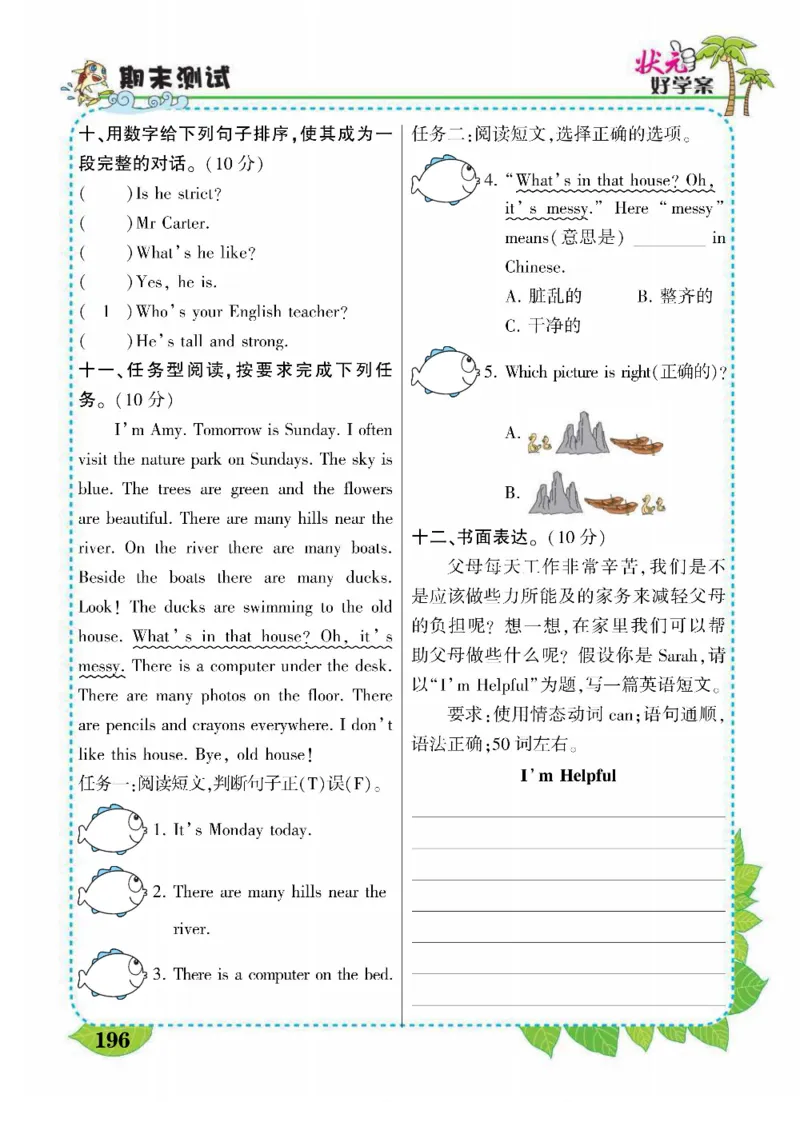 期末测试
状元
好学案
十、用数字给下列句子排序,使其成为一
段完整的对话。(10分)
(    )Is he strict?
(    )Mr Carter.
(    )What's he like?
(    )Yes, he is.
( 1 )Who's your English teacher?
(    )He's tall and strong.
十一、任务型阅读,按要求完成下列任
务。(10分)
I'm Amy. Tomorrow is Sunday. I often
visit the nature park on Sundays. The sky is
blue. The trees are green and the flowers
are beautiful. There are many hills near the
river. On the river there are many boats.
Beside the boats there are many ducks.
Look! The ducks are swimming to the old
house. What's in that house? Oh, it's
messy. There is a computer under the desk.
There are many photos on the floor. There
are pencils and crayons everywhere. I don't
like this house. Bye, old house!
任务一:阅读短文,判断句子正(T)误(F)。
1. It's Monday today.
2. There are many hills near the
river.
3. There is a computer on the bed.
任务二:阅读短文,选择正确的选项。
4. "What's in that house? Oh,
it's messy." Here "messy"
means(意思是) ________ in
Chinese.
A. 脏乱的 B. 整齐的
C. 干净的
5. Which picture is right(正确的)?
A.
B.
十二、书面表达。(10分)
父母每天工作非常辛苦,我们是不
是应该做些力所能及的家务来减轻父母
的负担呢?想一想,在家里我们可以帮
助父母做些什么呢?假设你是 Sarah,请
以"I'm Helpful"为题,写一篇英语短文。
要求:使用情态动词 can;语句通顺,
语法正确;50词左右。
I'm Helpful
196